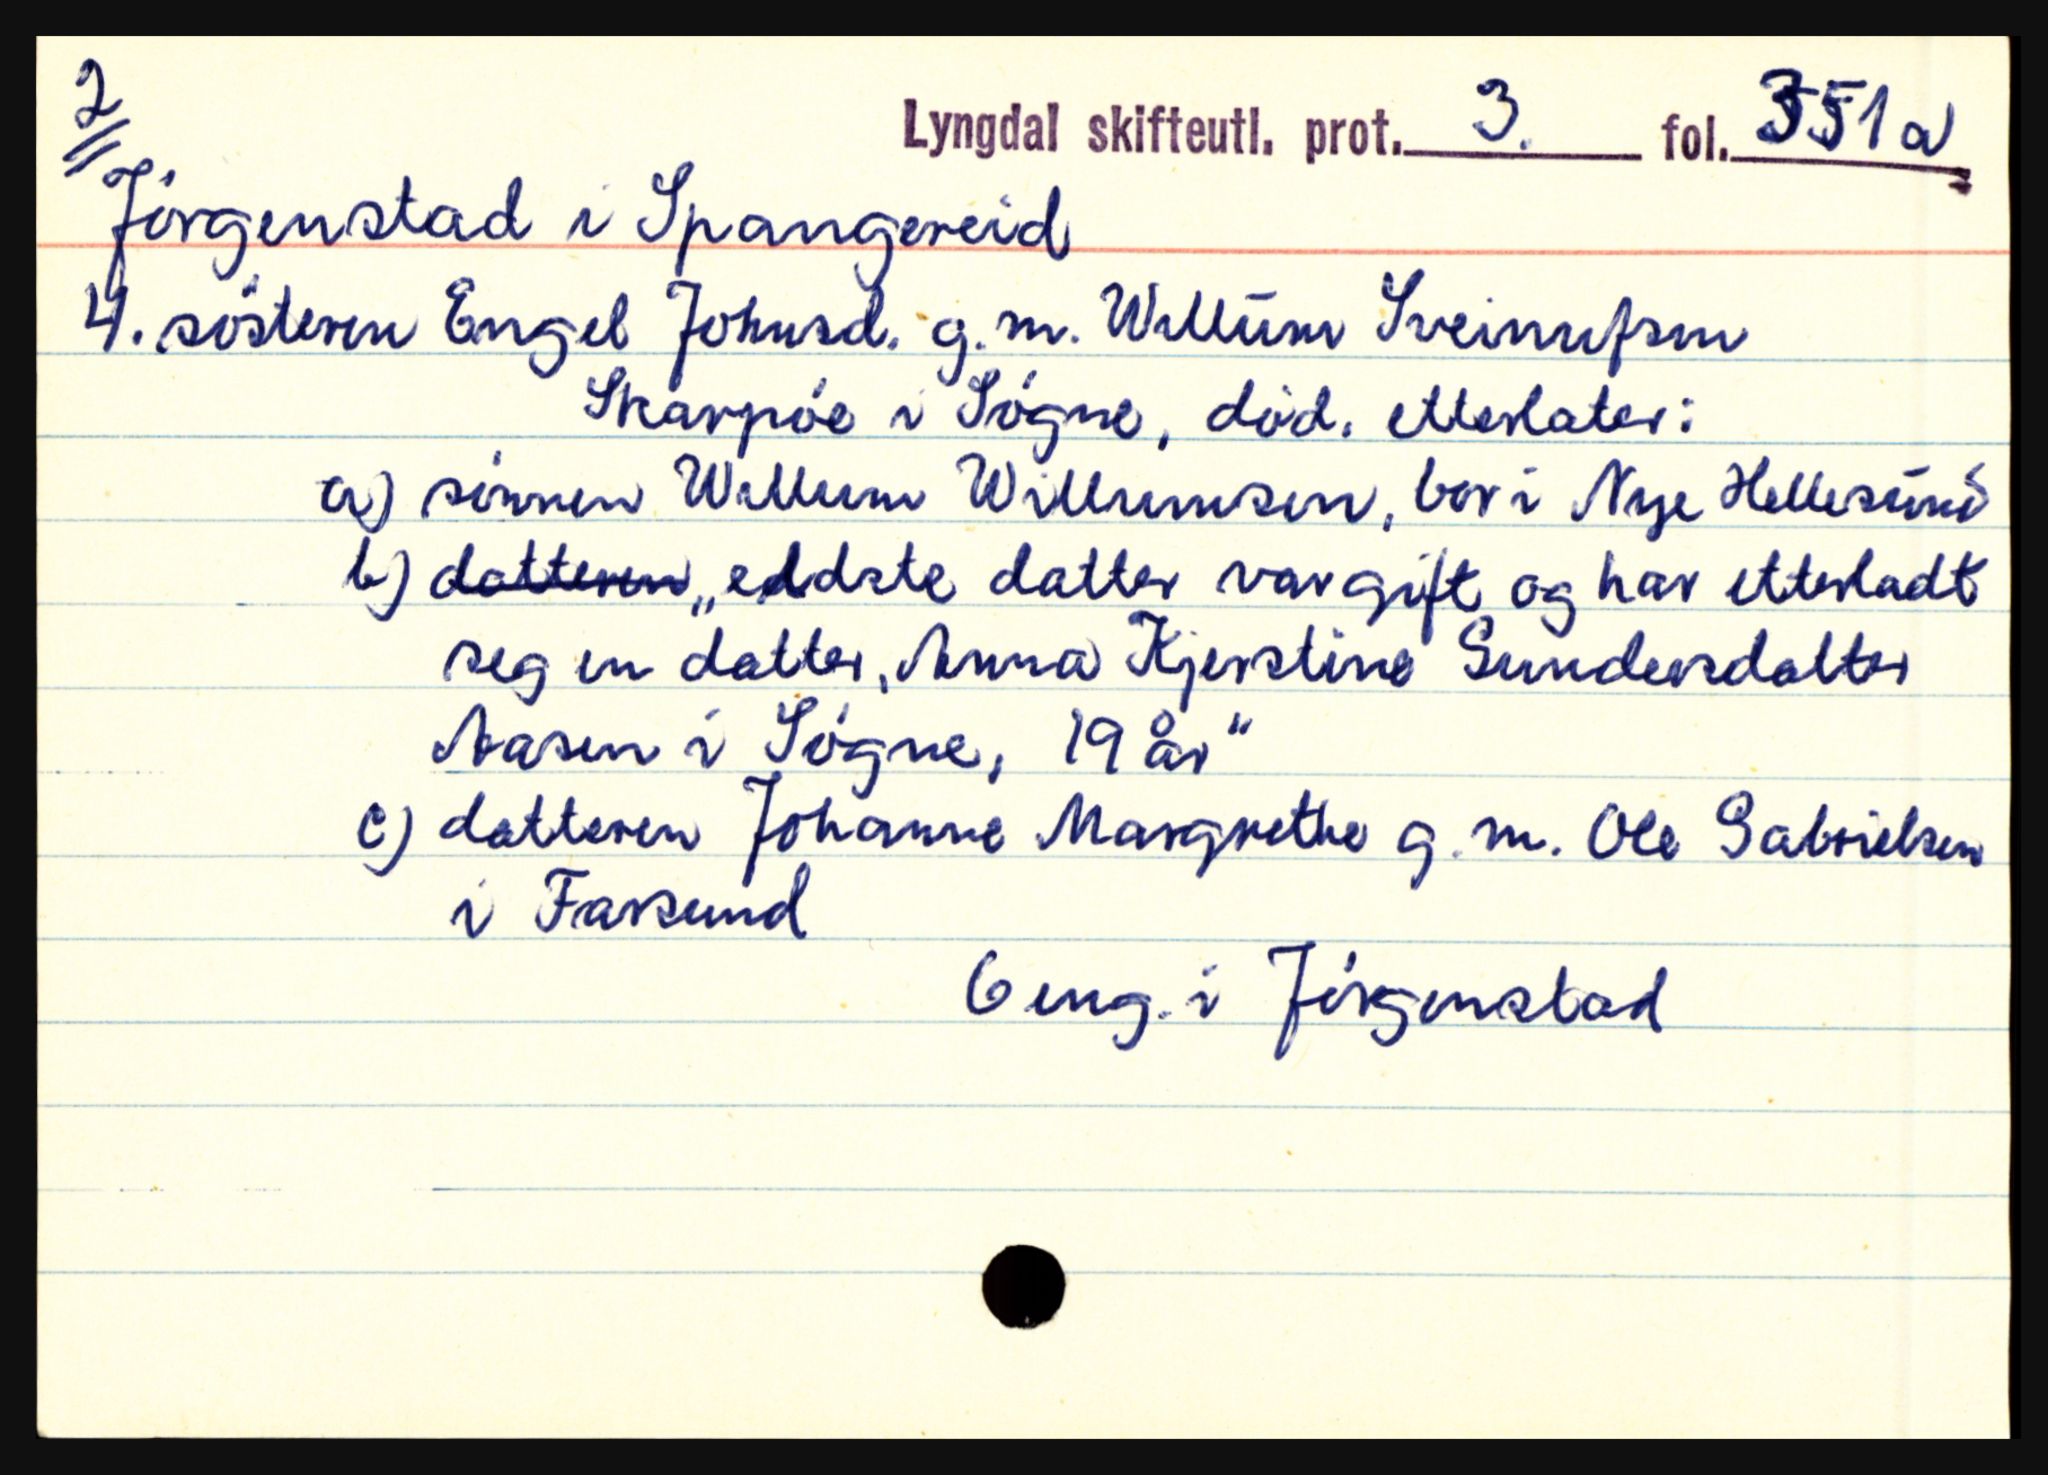 2
Lyngdal skifteutl. prot. 3. fol. 351a
Jörgenstad i Spangereid
4. sösteren Engel Johnsd. g.m. Willum Sveinufsen
Skarpöe i Sögne, död. etterlater:
a) sönnen Willum Willumsen, bor i Nye Hellesund
b) datteren „eldste datter var gift og har etterladt
seg en datter, Anna Kjerstine Gundersdatter
Aasen i Sögne, 19 år"
c) datteren Johanne Margrethe g.m. Ole Gabrielsen
i Farsund
6 eng. i Jörgenstad